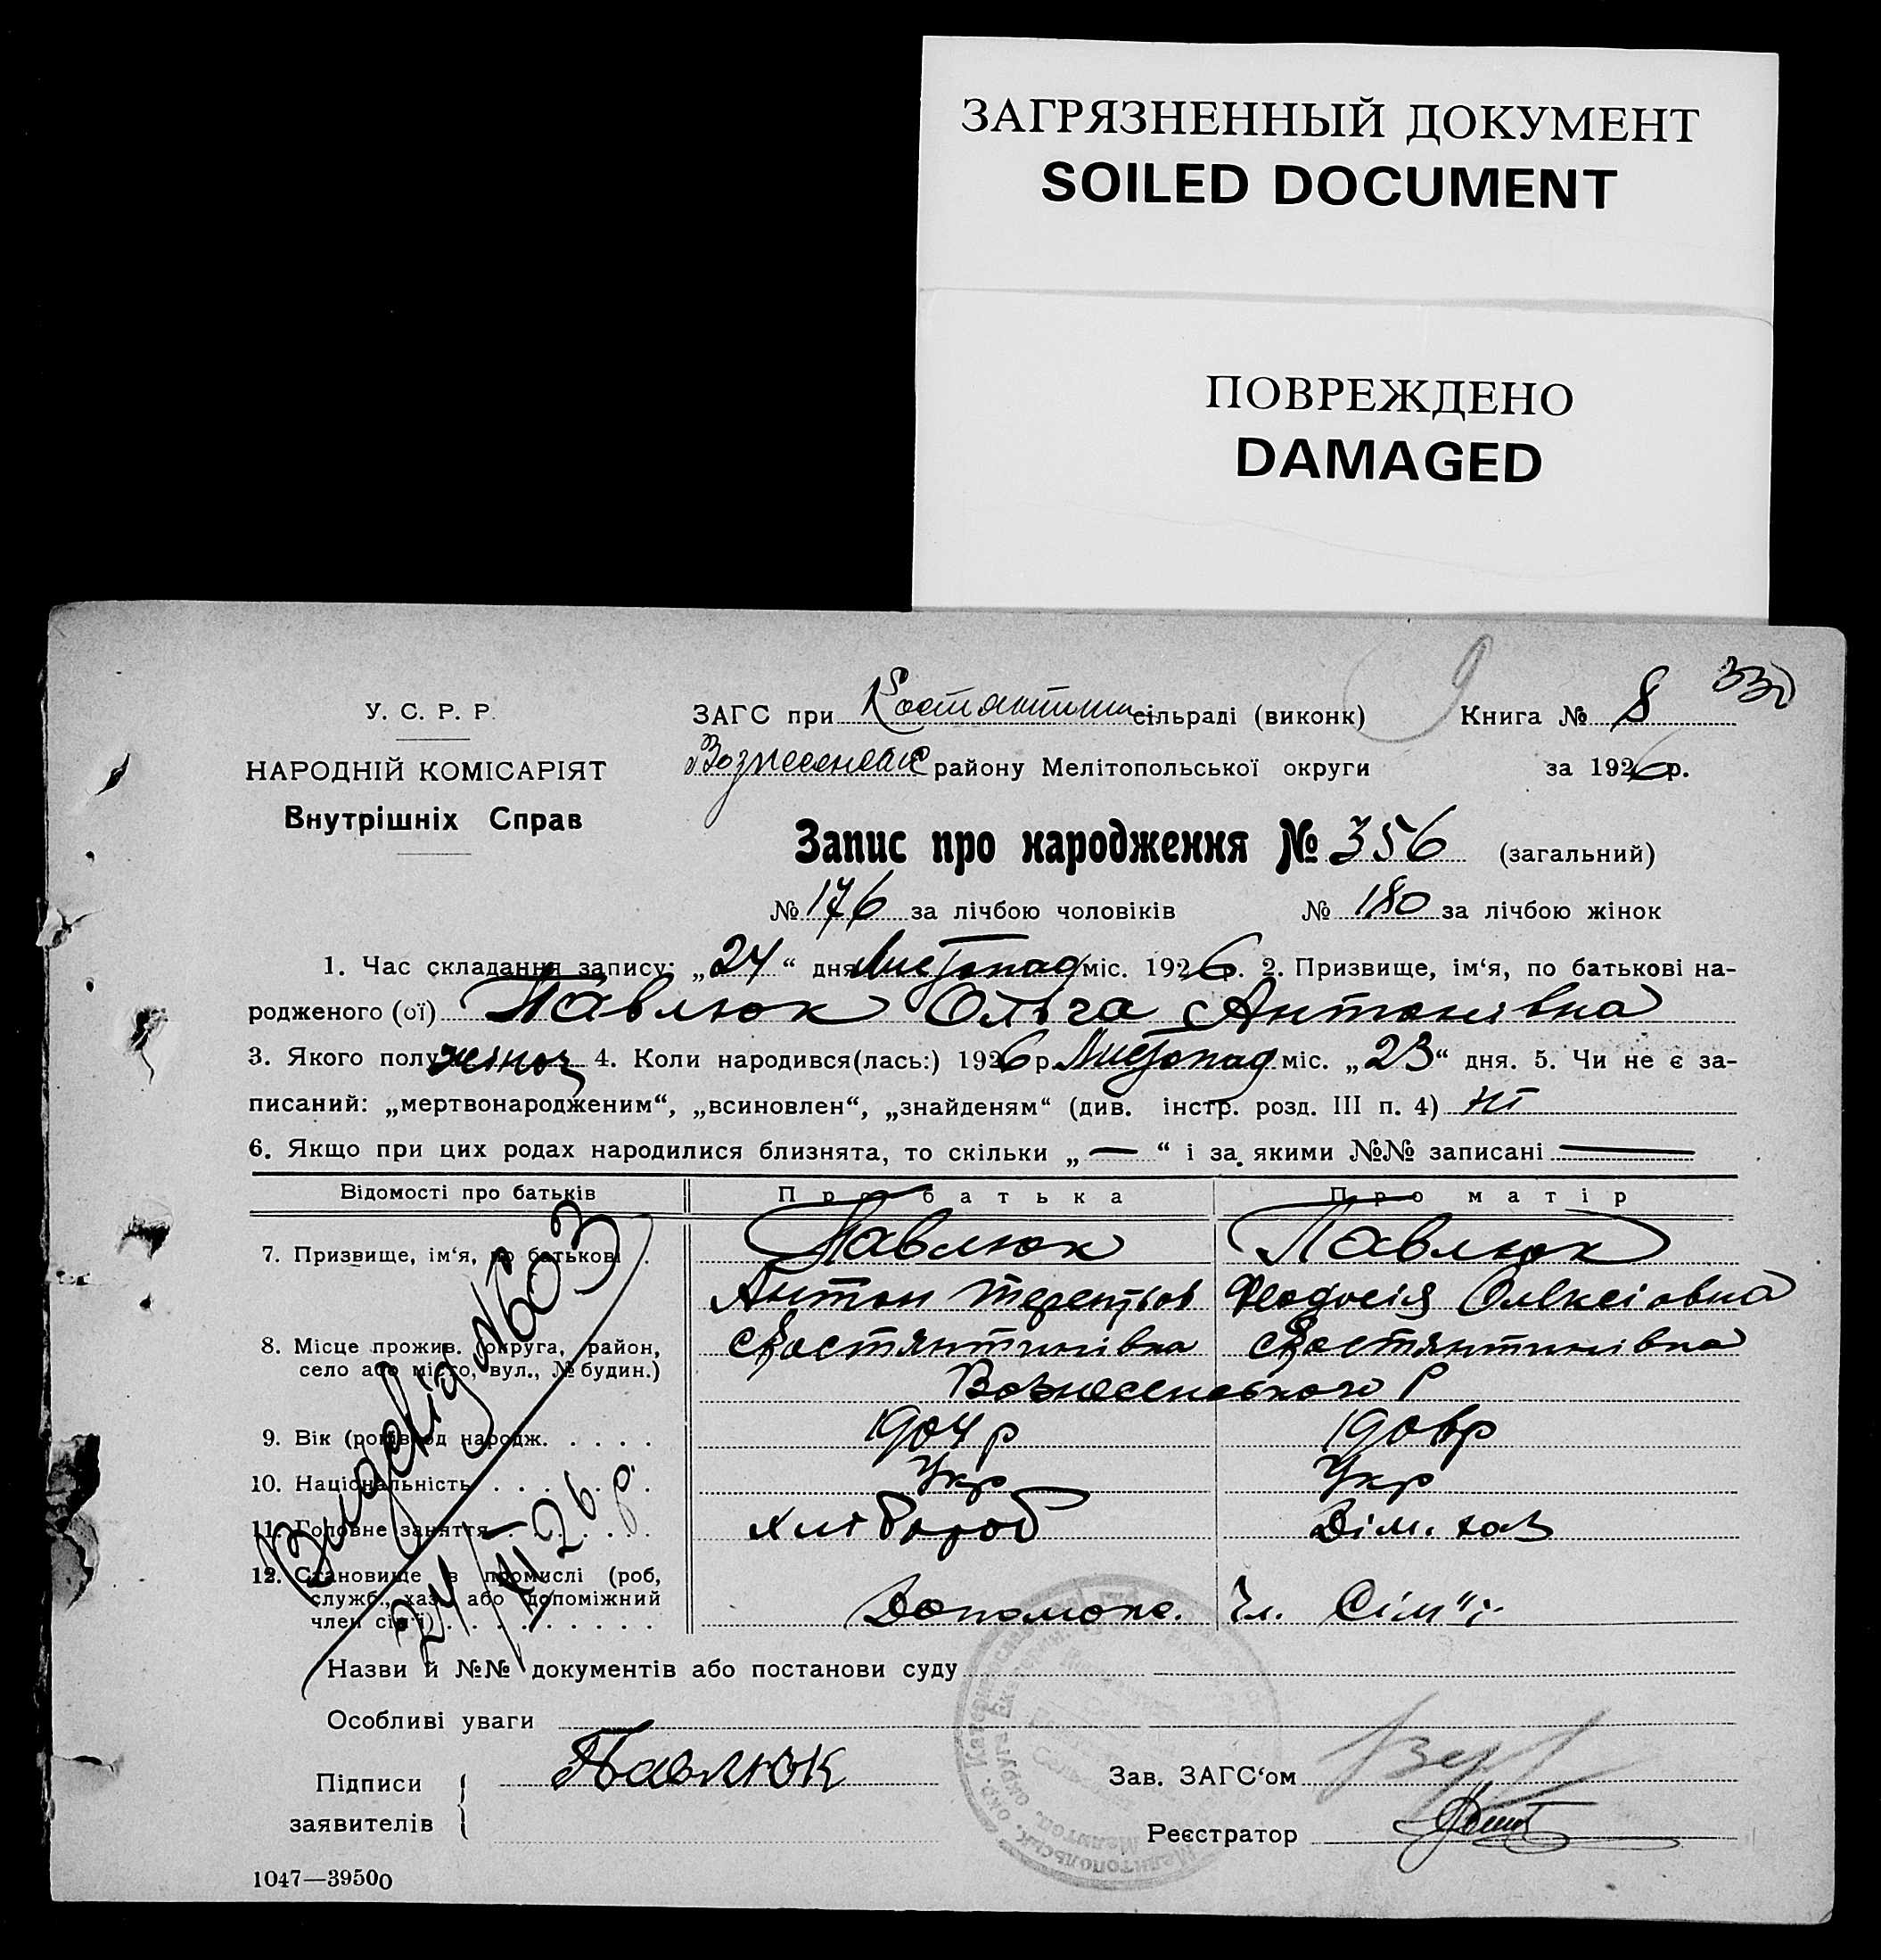 ЗАГРЯЗНЕННЫЙ ДОКУМЕНТ
SOILED DOCUMENT
ПОВРЕЖДЕНО
DAMAGED
330
9
У. С. Р. Р.
НАРОДНІЙ КОМІСАРІЯТ
Внутрішніх Справ
ЗАГС при Костянтин сільраді (виконк) Книга № 8
Вознесенськ району Мелітопольської округи за 1926 р.
Запис про народження № 356 (загальний)
№ 176 за лічбою чоловіків № 180 за лічбою жінок
1. Час складання запису: „24“ дня Листопад міс. 1926 р. 2. Призвище, ім‘я, по батькові на-
родженого (ої) Павлюк Ольга Антонівна
3. Якого полу жіноч 4. Коли народився(лась:) 1926 р. Листопад міс. „23“ дня. 5. Чи не є за-
писаний: „мертвонародженим“, „всиновлен“, „знайденям“ (див. інстр. розд. III п. 4) ні
6. Якщо при цих родах народилися близнята, то скільки „—“ і за якими №№ записані —
Відомості про батьків Про батька Про матір
7. Призвище, ім‘я, по батькові . Павлюк Павлюк
Антон Терентьов Феодосія Олексіовна
8. Місце прожив. (округа, район, село або місто, вул., № будин.) Костянтинівка Костянтинівка
Вознесенського Р
9. Вік (років од народж. . . . . 1904 р 1906 р
10. Національність . . . . . Укр Укр
11. Головне заняття . . . . . Хлібороб Дім. хаз
12. Становище в промислі (роб, служб., хаз. або допоміжний член сім‘ї) . . . . . Допомоно. Чл. Сім"ї
Видовід №603
24/XI 26 р.
Назви й №№ документів або постанови суду
Особливі уваги
Підписи
заявителів Павлюк
Зав. ЗАГС‘ом
Реєстратор
1047—39500